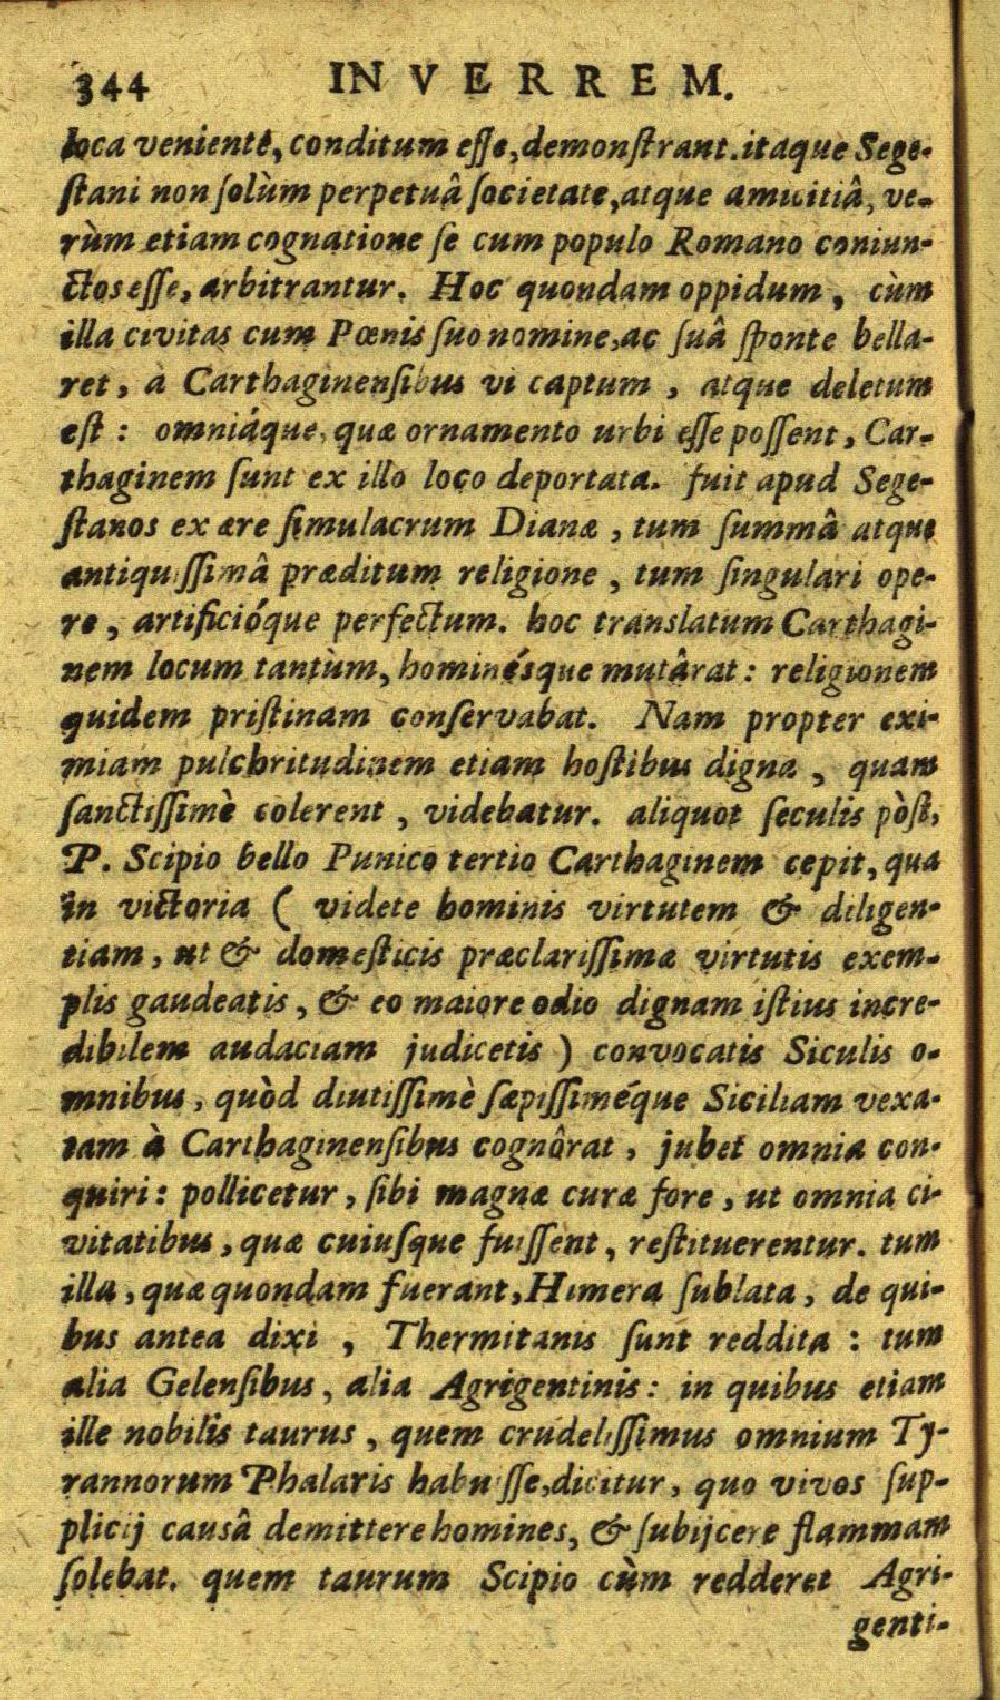 344 IN VERREM.
loca veniente, conditum eſſe, demonſtrant. itaque Sege-
ſtani non ſolùm perpetuâ ſocietate, atque amicitiâ, ve-
rùm etiam cognatione ſe cum populo Romano coniun-
ctos eſſe, arbitrantur. Hoc quondam oppidum, cùm
illa civitas cum Pœnis ſuo nomine, ac ſuâ ſponte bella-
ret, à Carthaginenſibus vi captum, atque deletum
eſt: omniáque, quæ ornamento urbi eſſe poſſent, Car-
thaginem ſunt ex illo loco deportata. fuit apud Sege-
ſtanos ex ære ſimulacrum Dianæ, tum ſummâ atque
antiquiſſimâ præditum religione, tum ſingulari ope-
re, artificióque perfectum. hoc translatum Carthagi-
nem locum tantùm, hominésque mutârat: religionem
quidem priſtinam conſervabat. Nam propter exi-
miam pulchritudinem etiam hoſtibus digna, quam
ſanctiſſimè colerent, videbatur. aliquot ſeculis pòſt,
P. Scipio bello Punico tertio Carthaginem cepit, qua
in victoria ( videte hominis virtutem & diligen-
tiam, ut & domeſticis præclariſſimæ virtutis exem-
plis gaudeatis, & eo maiore odio dignam iſtius incre-
dibilem audaciam judicetis ) convocatis Siculis o-
mnibus, quòd diutiſſimè ſæpiſſiméque Siciliam vexa-
tam à Carthaginenſibus cognôrat, jubet omnia con-
quiri: pollicetur, ſibi magnæ curæ fore, ut omnia ci-
vitatibus, quæ cuiuſque fuiſſent, reſtituerentur. tum
illa, quæ quondam fuerant, Himera ſublata, de qui-
bus antea dixi, Thermitanis ſunt reddita: tum
alia Gelenſibus, alia Agrigentinis: in quibus etiam
ille nobilis taurus, quem crudeliſſimus omnium Ty-
rannorum Phalaris habuiſſe, dicitur, quo vivos ſup-
plicij causâ demittere homines, & ſubijcere flammam
ſolebat. quem taurum Scipio cùm redderet Agri-
genti-